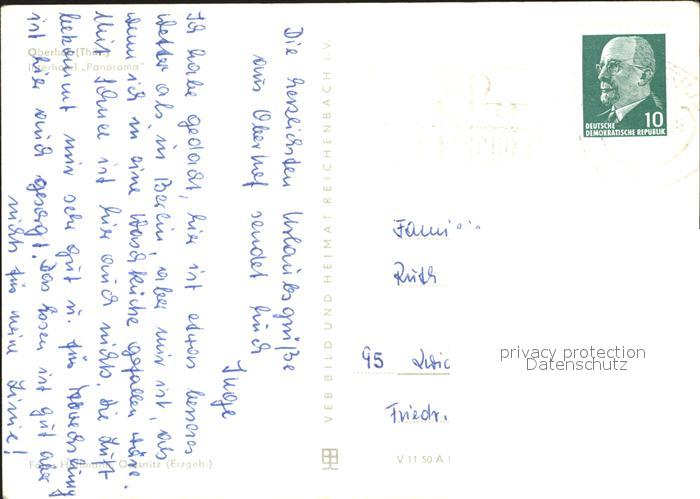 Oberhof (Thür.)
Interhotel „Panorama"
Die herzlichsten Urlaubsgrüße
aus Oberhof sendet Euch
Inge
Ich habe gedacht, hier ist etwas besseres
Wetter als in Berlin, aber mir ist, als
wenn ich in eine Waschküche gefallen wäre.
Mit Schnee ist hier auch nichts. Die Luft
bekommt mir sehr gut u. für Abwechslung
ist hier auch gesorgt. Das Essen ist gut aber
nichts für meine Linie!
Foto: Hoffmann, Oelsnitz (Erzgeb.)
VEB BILD UND HEIMAT REICHENBACH I. V.
V 11 50 A 1
DEUTSCHE
DEMOKRATISCHE REPUBLIK
10
Fami
Ruth
95 Zwic
Friedr.
privacy protection
Datenschutz